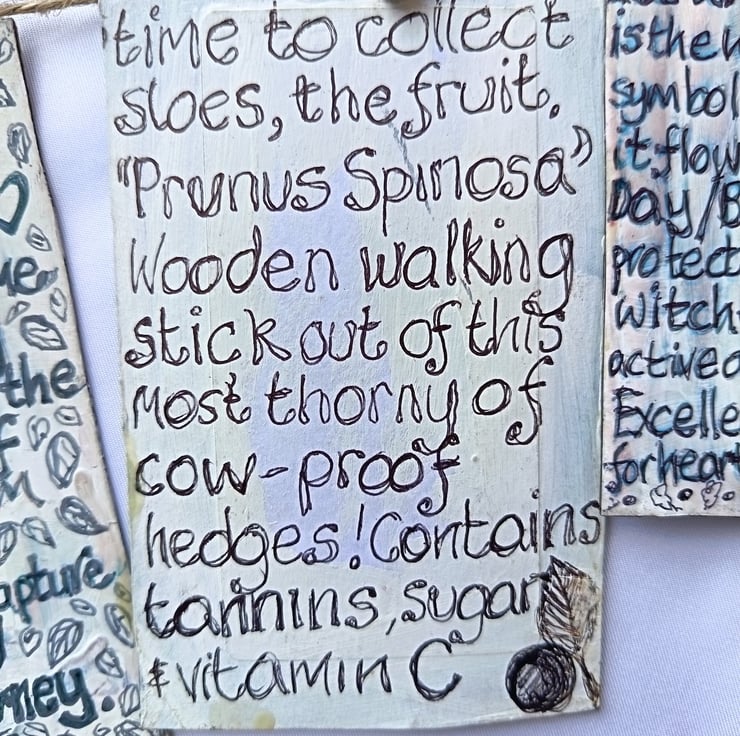 time to collect
sloes, the fruit.
"Prunus Spinosa"
Wooden walking
stick out of this
Most thorny of
cow-proof
hedges! Contains
tannins, sugar
& vitamin C
the
apture
ney.
is the
symbol
it, flow
Day/B
protect
witch
active
Excelle
for heart